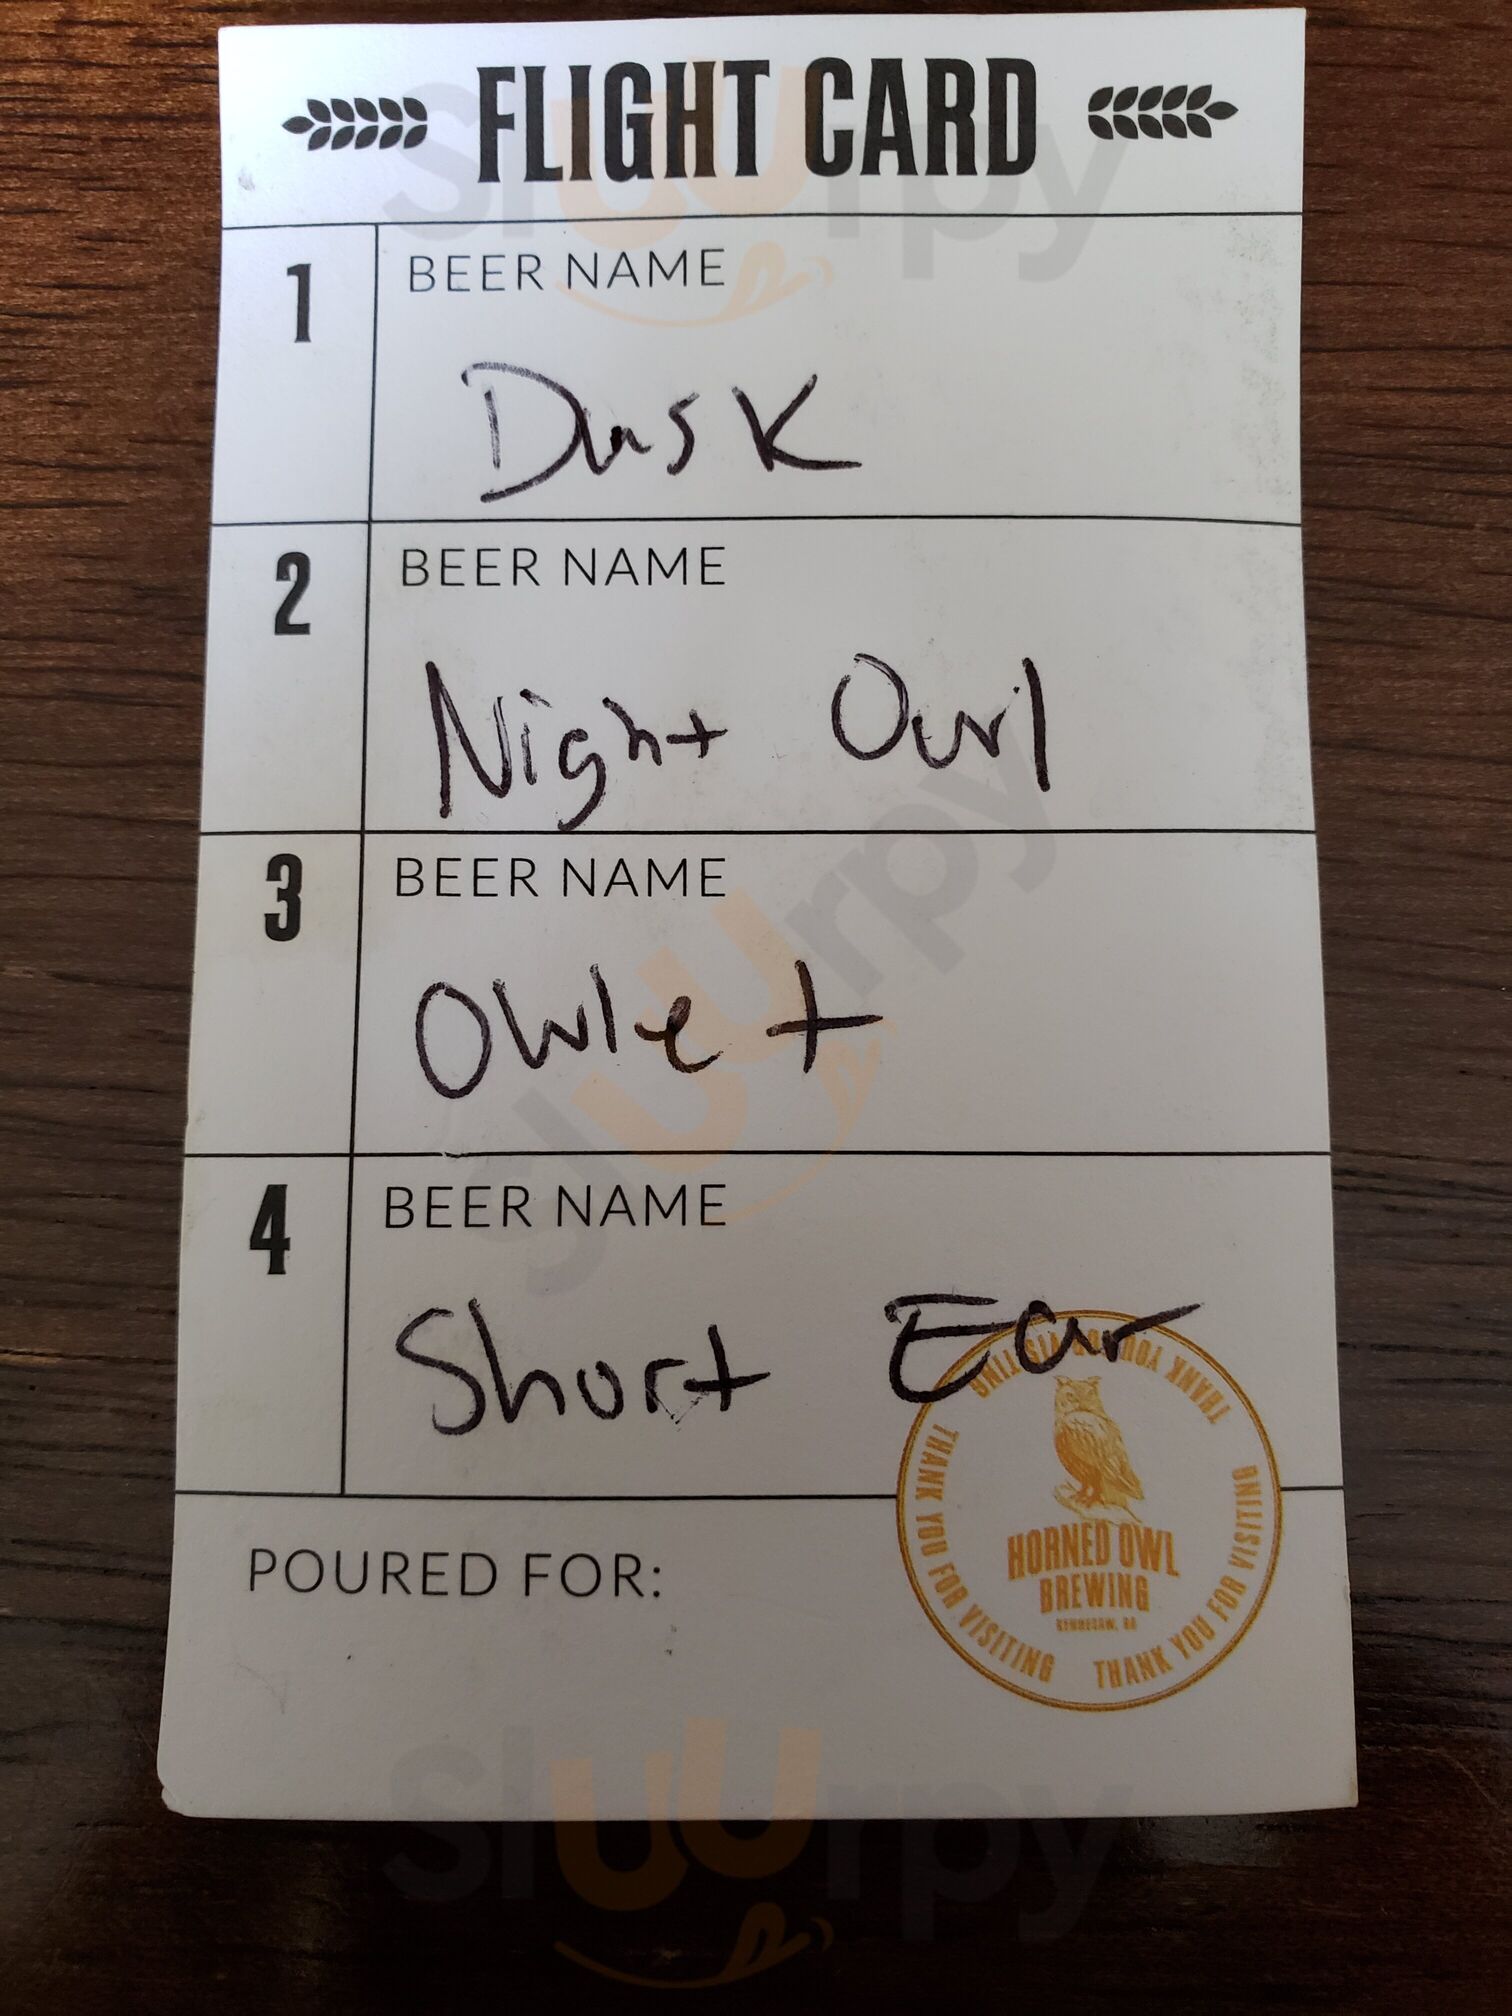 FLIGHT CARD
1
BEER NAME
Dusk
2
BEER NAME
Night Owl
3
BEER NAME
Owlet
4
BEER NAME
Short Ear
POURED FOR:
THANK YOU FOR VISITING
THANK YOU FOR VISITING
THANK YOU FOR VISITING
HORNED OWL
BREWING
KENNESAW, GA
Sluurpy
Sluurpy
Sluurpy